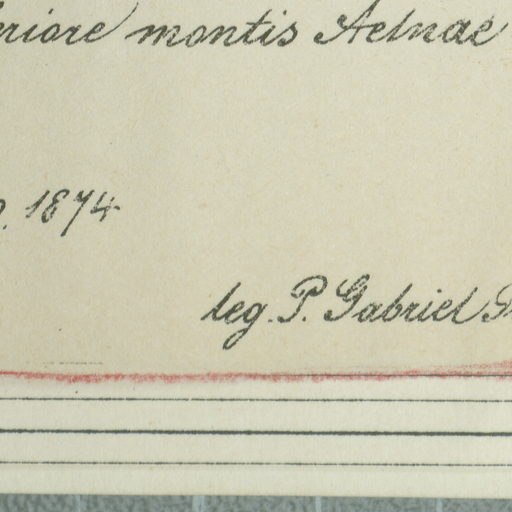 montis Aetnae
1874
leg. P. Gabriel